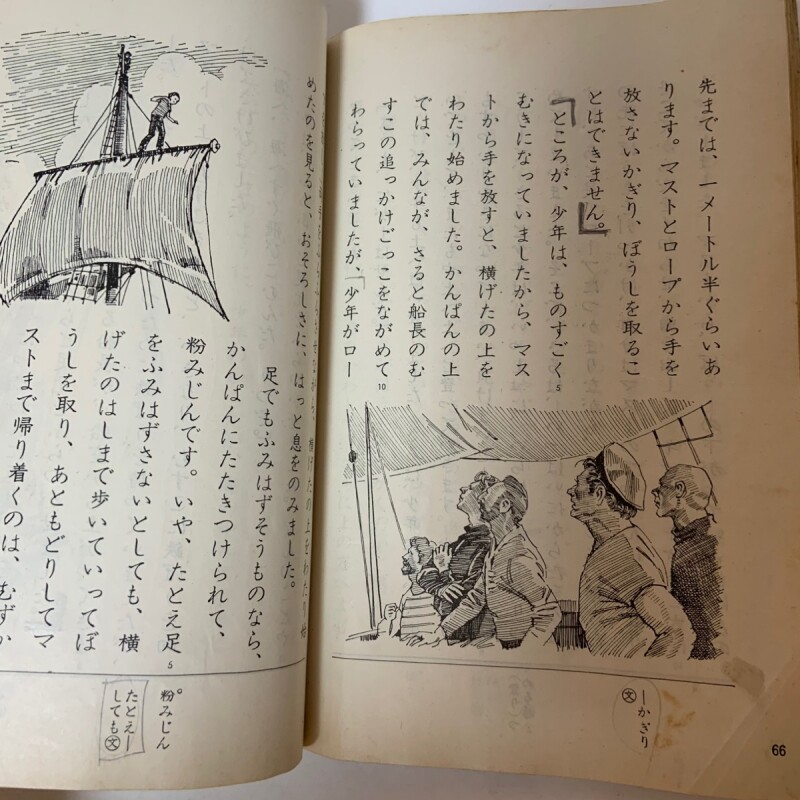 先までは、一メートル半ぐらいあ
ります。マストとロープから手を
放さないかぎり、ぼうしを取るこ
とはできません。
ところが、少年は、ものすごく
むきになっていましたから、マス
トから手を放すと、横げたの上を
わたり始めました。かんぱんの上
では、みんなが、さると船長のむ
すこの追っかけごっこをながめて
わらっていましたが、「少年がロー
5
10
―かぎり
文
66
めたのを見ると、おそろしさに、はっと息をのみました。
足でもふみはずそうものなら、
かんぱんにたたきつけられて、
粉みじんです。いや、たとえ足
をふみはずさないとしても、横
げたのはしまで歩いていってぼ
うしを取り、あともどりしてマ
ストまで帰り着くのは、むずか
5
粉みじん
たとえ―
しても文